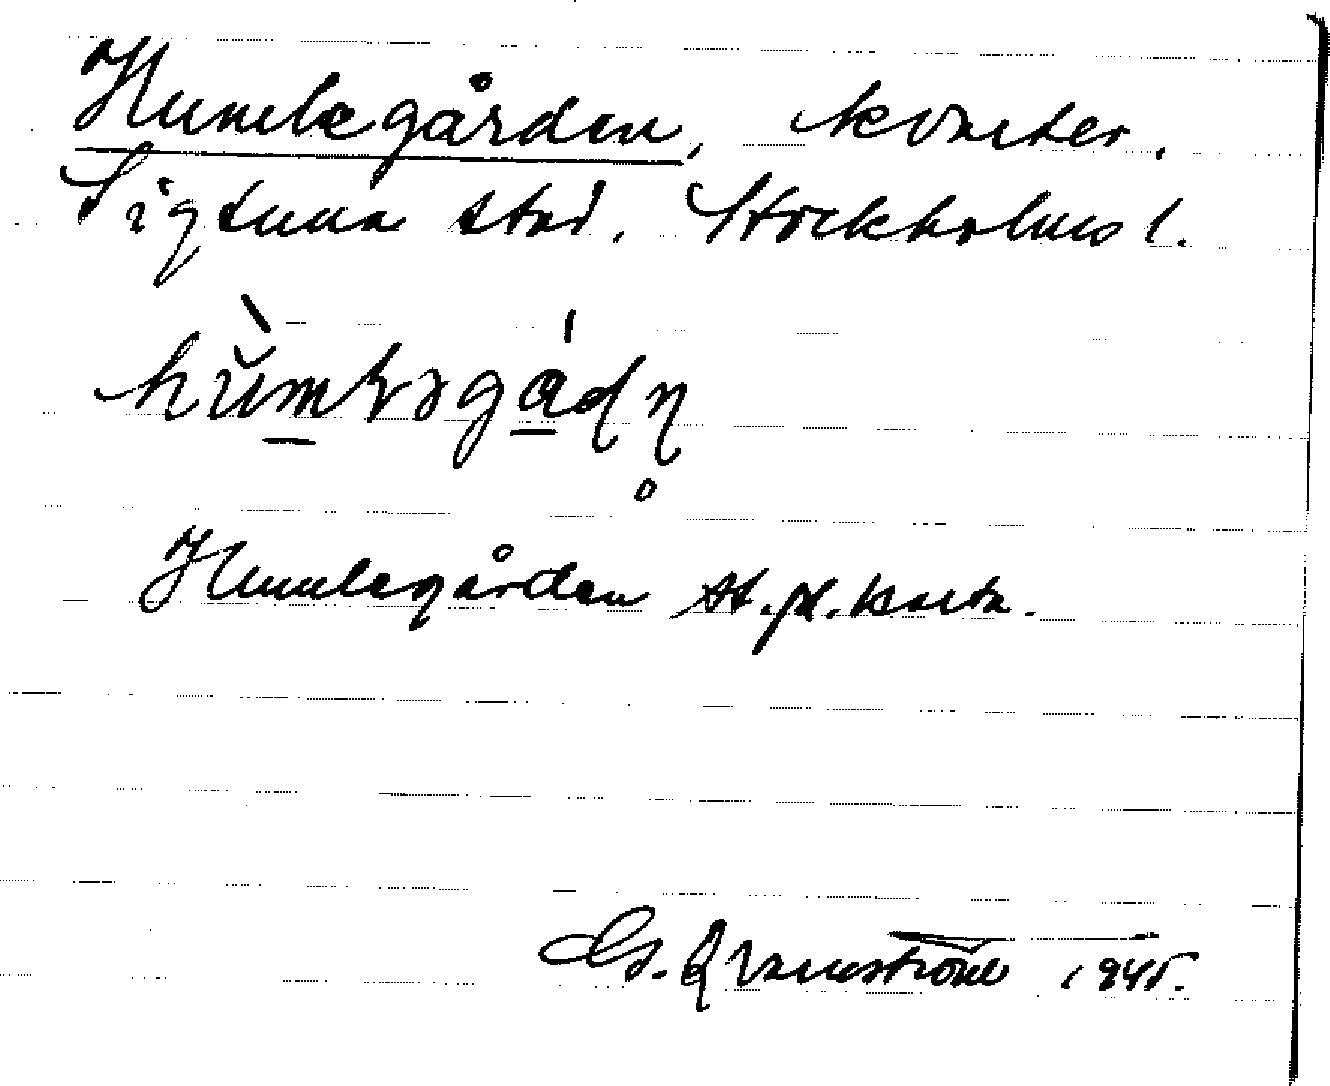 Humlegården, kvarter.
Sigtuna stad, Stockholms l.
Humlegården st.pl.karta.
G. Qvarnström 1945.